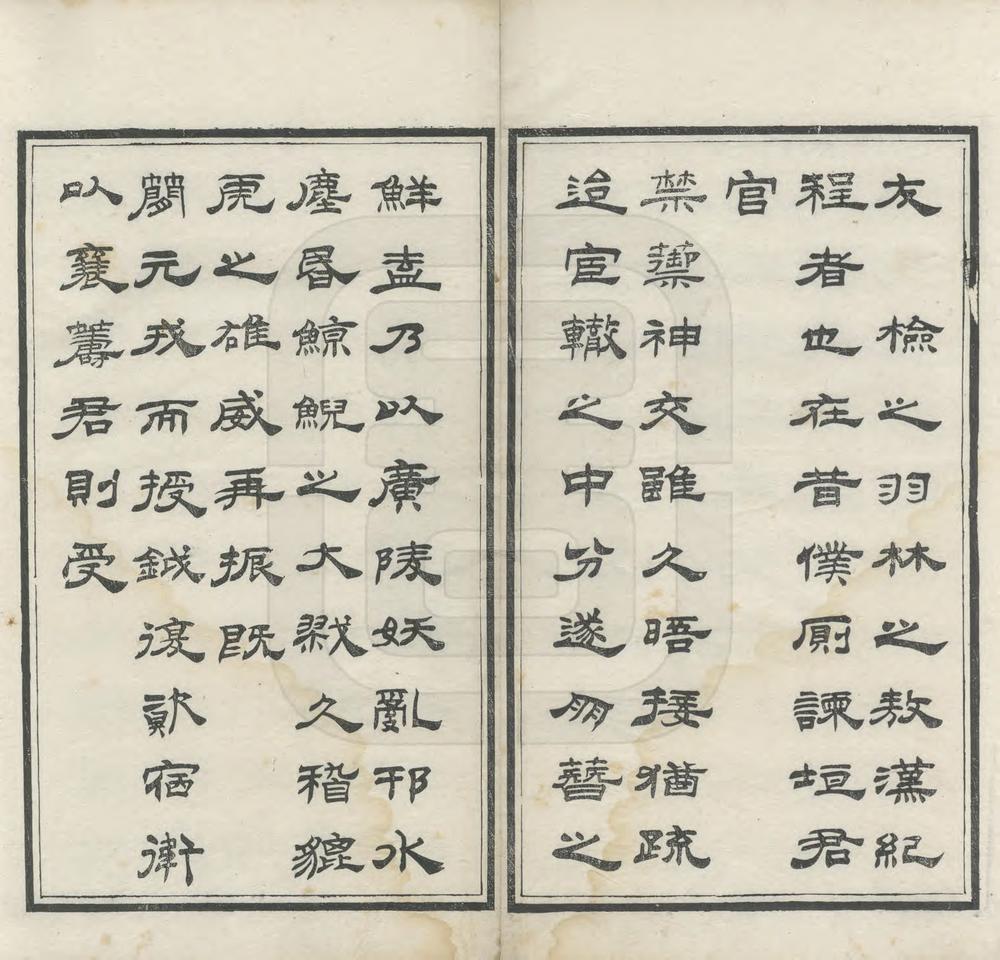 友檢之羽林之敖漢紀
程者也在昔僕厠諫垣君
官
禁籞神交雖久晤接猶疏
迨宦轍之中分遂朋簪之
鮮盍乃以廣陵妖亂邗水
塵昏鯨鯢之大戮久稽貔
虎之雄威再振旣
簡元戎而授鉞復宿衛
以襄籌君則受